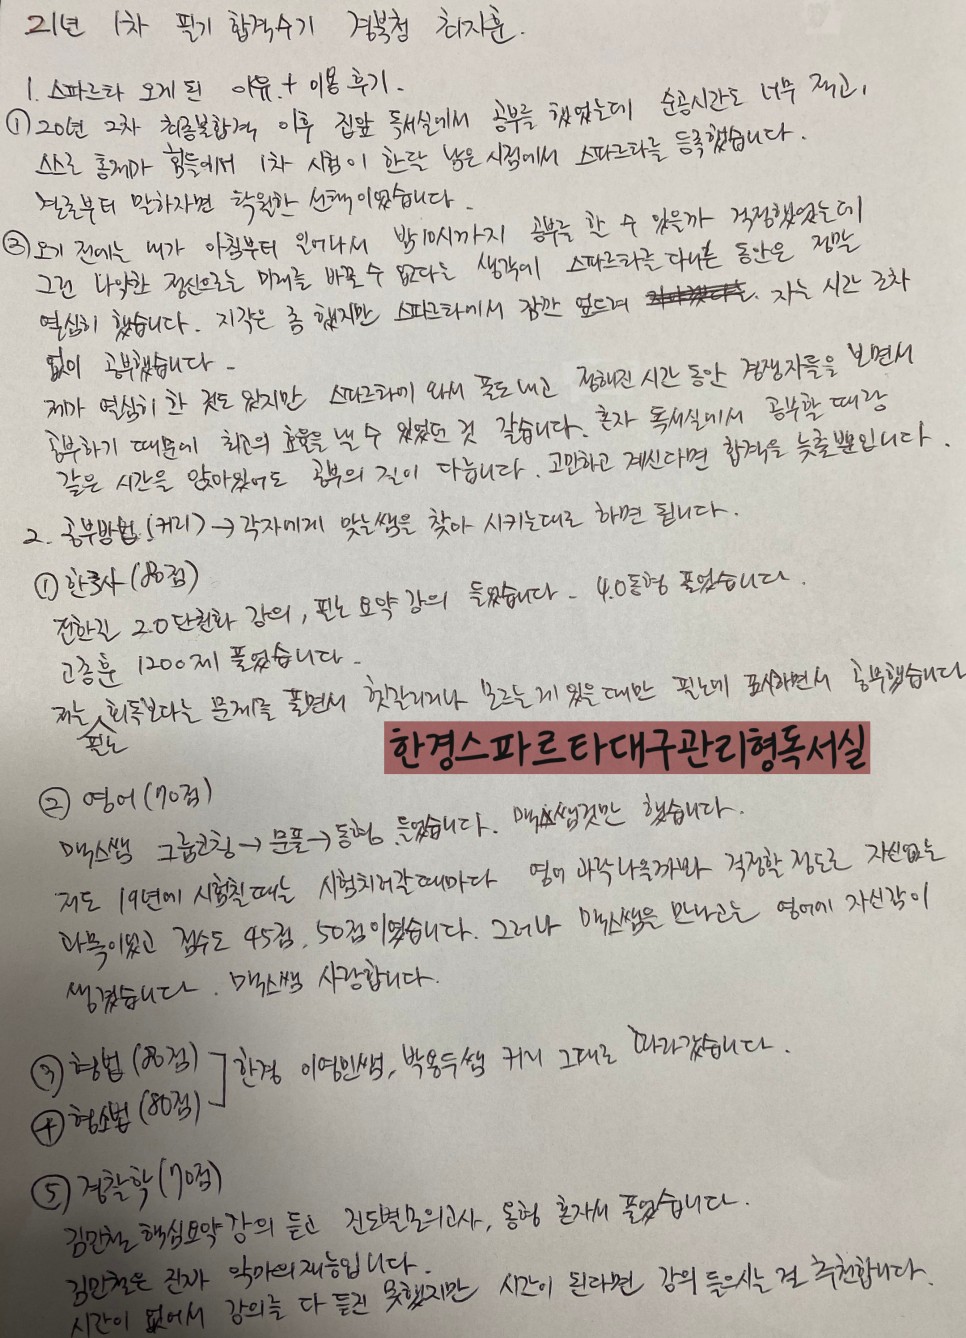 21년 1차 필기 합격수기 경북청 최지훈.
1. 스파르타 오게 된 이유 + 이용 후기.
① 20년 2차 최종불합격 이후 집앞 독서실에서 공부를 했었는데 순공시간도 너무 적고,
스스로 통제가 힘들어서 1차 시험이 한달 남은 시점에서 스파르타를 등록했습니다.
결론부터 말하자면 탁월한 선택이었습니다.
② 오기 전에는 내가 아침부터 일어나서 밤10시까지 공부를 할 수 있을까 걱정했었는데
그런 나약한 정신으로는 미래를 바꿀 수 없다는 생각에 스파르타를 다니는 동안은 정말
열심히 했습니다. 지각은 좀 했지만 스파르타에서 잠깐 엎드려 자는 시간 조차
없이 공부했습니다.
제가 열심히 한 것도 있지만 스파르타에 와서 폰도 내고 정해진 시간 동안 경쟁자들을 보면서
공부하기 때문에 최고의 효율을 낼 수 있었던 것 같습니다. 혼자 독서실에서 공부할 때랑
같은 시간을 앉아있어도 공부의 질이 다릅니다. 고민하고 계신다면 합격을 늦출뿐입니다.
2. 공부방법(커리) → 각자에게 맞는쌤을 찾아 시키는대로 하면 됩니다.
① 한국사(80점)
전한길 2.0 단천화 강의, 필노 요약 강의 들었습니다. 4.0동형 풀었습니다.
고종훈 1200제 풀었습니다.
저는 필노 회독보다는 문제를 풀면서 헷갈리거나 모르는 게 있을 때만 필노에 표시하면서 공부했습니다
한경스파르타대구관리형독서실
② 영어(70점)
맥스쌤 그룹코칭 → 문풀 → 동형 들었습니다. 맥스쌤것만 했습니다.
저도 19년에 시험칠때는 시험치러갈때마다 영어 과락나올까봐 걱정할 정도로 자신없는
과목이었고 점수도 45점, 50점이었습니다. 그러나 맥스쌤을 만나고는 영어에 자신감이
생겼습니다. 맥스쌤 사랑합니다.
③ 형법(80점)
④ 형소법(80점)
한경 이영민쌤, 박용두쌤 커리 그대로 따라갔습니다.
⑤ 경찰학(70점)
김민철 핵심요약 강의 듣고 진도별모의고사, 동형 혼자서 풀었습니다.
김민철은 진짜 악마의재능입니다.
시간이 없어서 강의를 다 듣진 못했지만 시간이 된다면 강의 들으시는 걸 추천합니다.